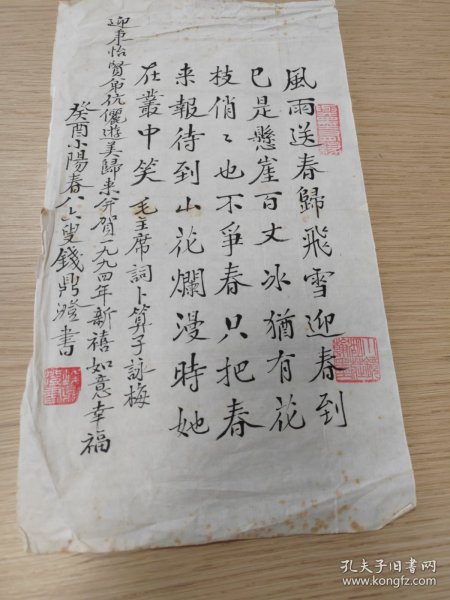 風雨送春歸飛雪迎春到
已是懸崖百丈冰猶有花
枝俏〻也不爭春只把春
來報待到山花爛漫時她
在叢中笑 毛主席詞卜算子詠梅
迎東怡賢弟伉儷遊美歸來並賀一九九四年新禧如意幸福
癸酉小陽春八六叟錢鼎澄書
孔夫子旧书网
www.kongfz.com